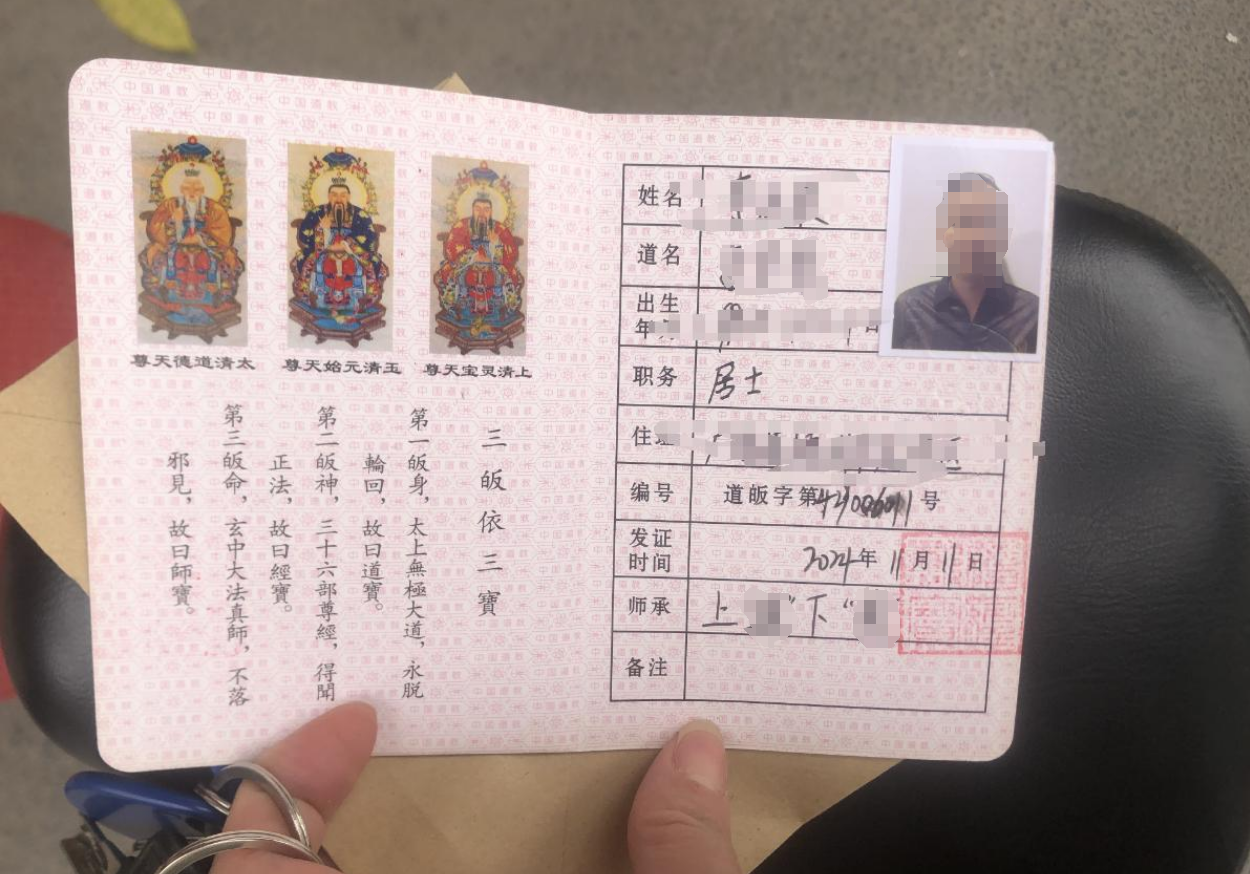 中国道教
尊天德道清太
尊天始元清玉
尊天宝灵上清上
三皈依三寶
第一皈身，太上無極大道，永脱
輪回，故曰道寶。
第二皈神，三十六部尊經，得聞
正法，故曰經寶。
第三皈命，玄中大法真師，不落
邪見，故曰師寶。
姓名
道名
出生
年
职务 居士
住
编号 道皈字第 号
发证
时间 2024年11月11日
师承 上 " 下 "
备注